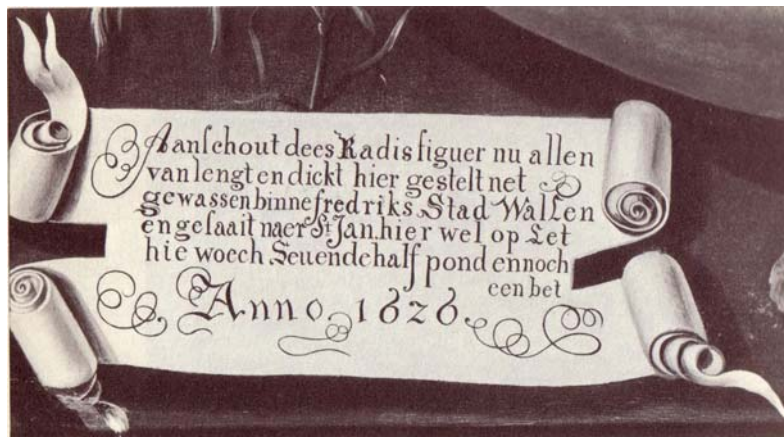 Aanschout dees Radis figuer nu allen
van lengt en dickt hier gestelt net
gewassen binne fredriks Stad Wallen
en gesaait naer St Jan. hier wel op Let
hie woech Seuendehalf pond en noch
een bet
Anno. 1626.